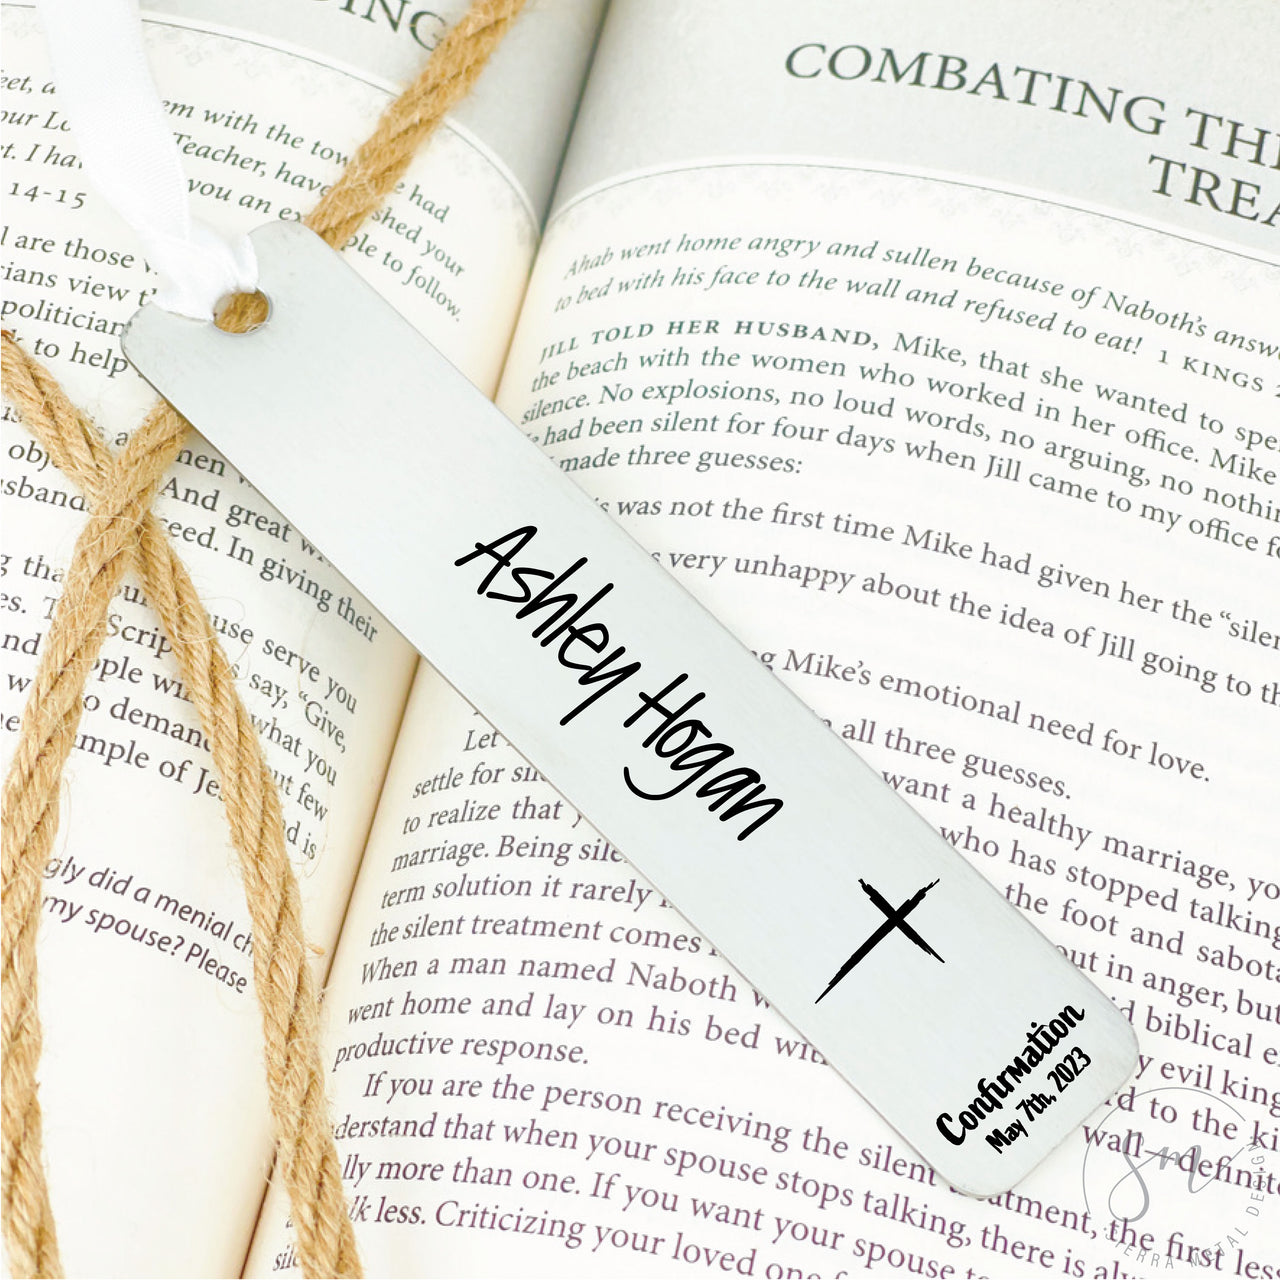 DING
COMBATING THE
TREA
em with the tow
had
our
Teacher, have
shed your
t. I ha
you an ex
ple to follow.
14-15
l are those
cians view t
politician
to help
And great w
eed. In giving their
use serve you
Script
say, "Give,
ople wi
what you
o demand
ut few
ample of Jes
d is
gly did a menial ch
my spouse? Please
Ahab went home angry and sullen because of Naboth's answ
to bed with his face to the wall and refused to eat! 1 KINGS
JILL TOLD HER HUSBAND, Mike, that she wanted to spe
the beach with the women who worked in her office. Mike
silence. No explosions, no loud words, no arguing, no nothin
had been silent for four days when Jill came to my office fo
made three guesses:
s was not the first time Mike had given her the "silen
s very unhappy about the idea of Jill going to th
g Mike's emotional need for love.
all three guesses.
Let
want a healthy marriage, yo
settle for sile
who has stopped talking
to realize that y
the foot and sabota
marriage. Being sile
out in anger, but
term solution it rarely
d biblical e
the silent treatment comes
y evil king
When a man named Naboth w
rd to the ki
went home and lay on his bed with
wall—definite
productive response.
If you are the person receiving the silent treatment, the first less
derstand that when your spouse stops talking, there is alw
lly more than one. If you want your spouse to
lk less. Criticizing your loved one f
Ashley Hogan
Confirmation
May 7th, 2023
SM
SIERRA METAL DESIGN